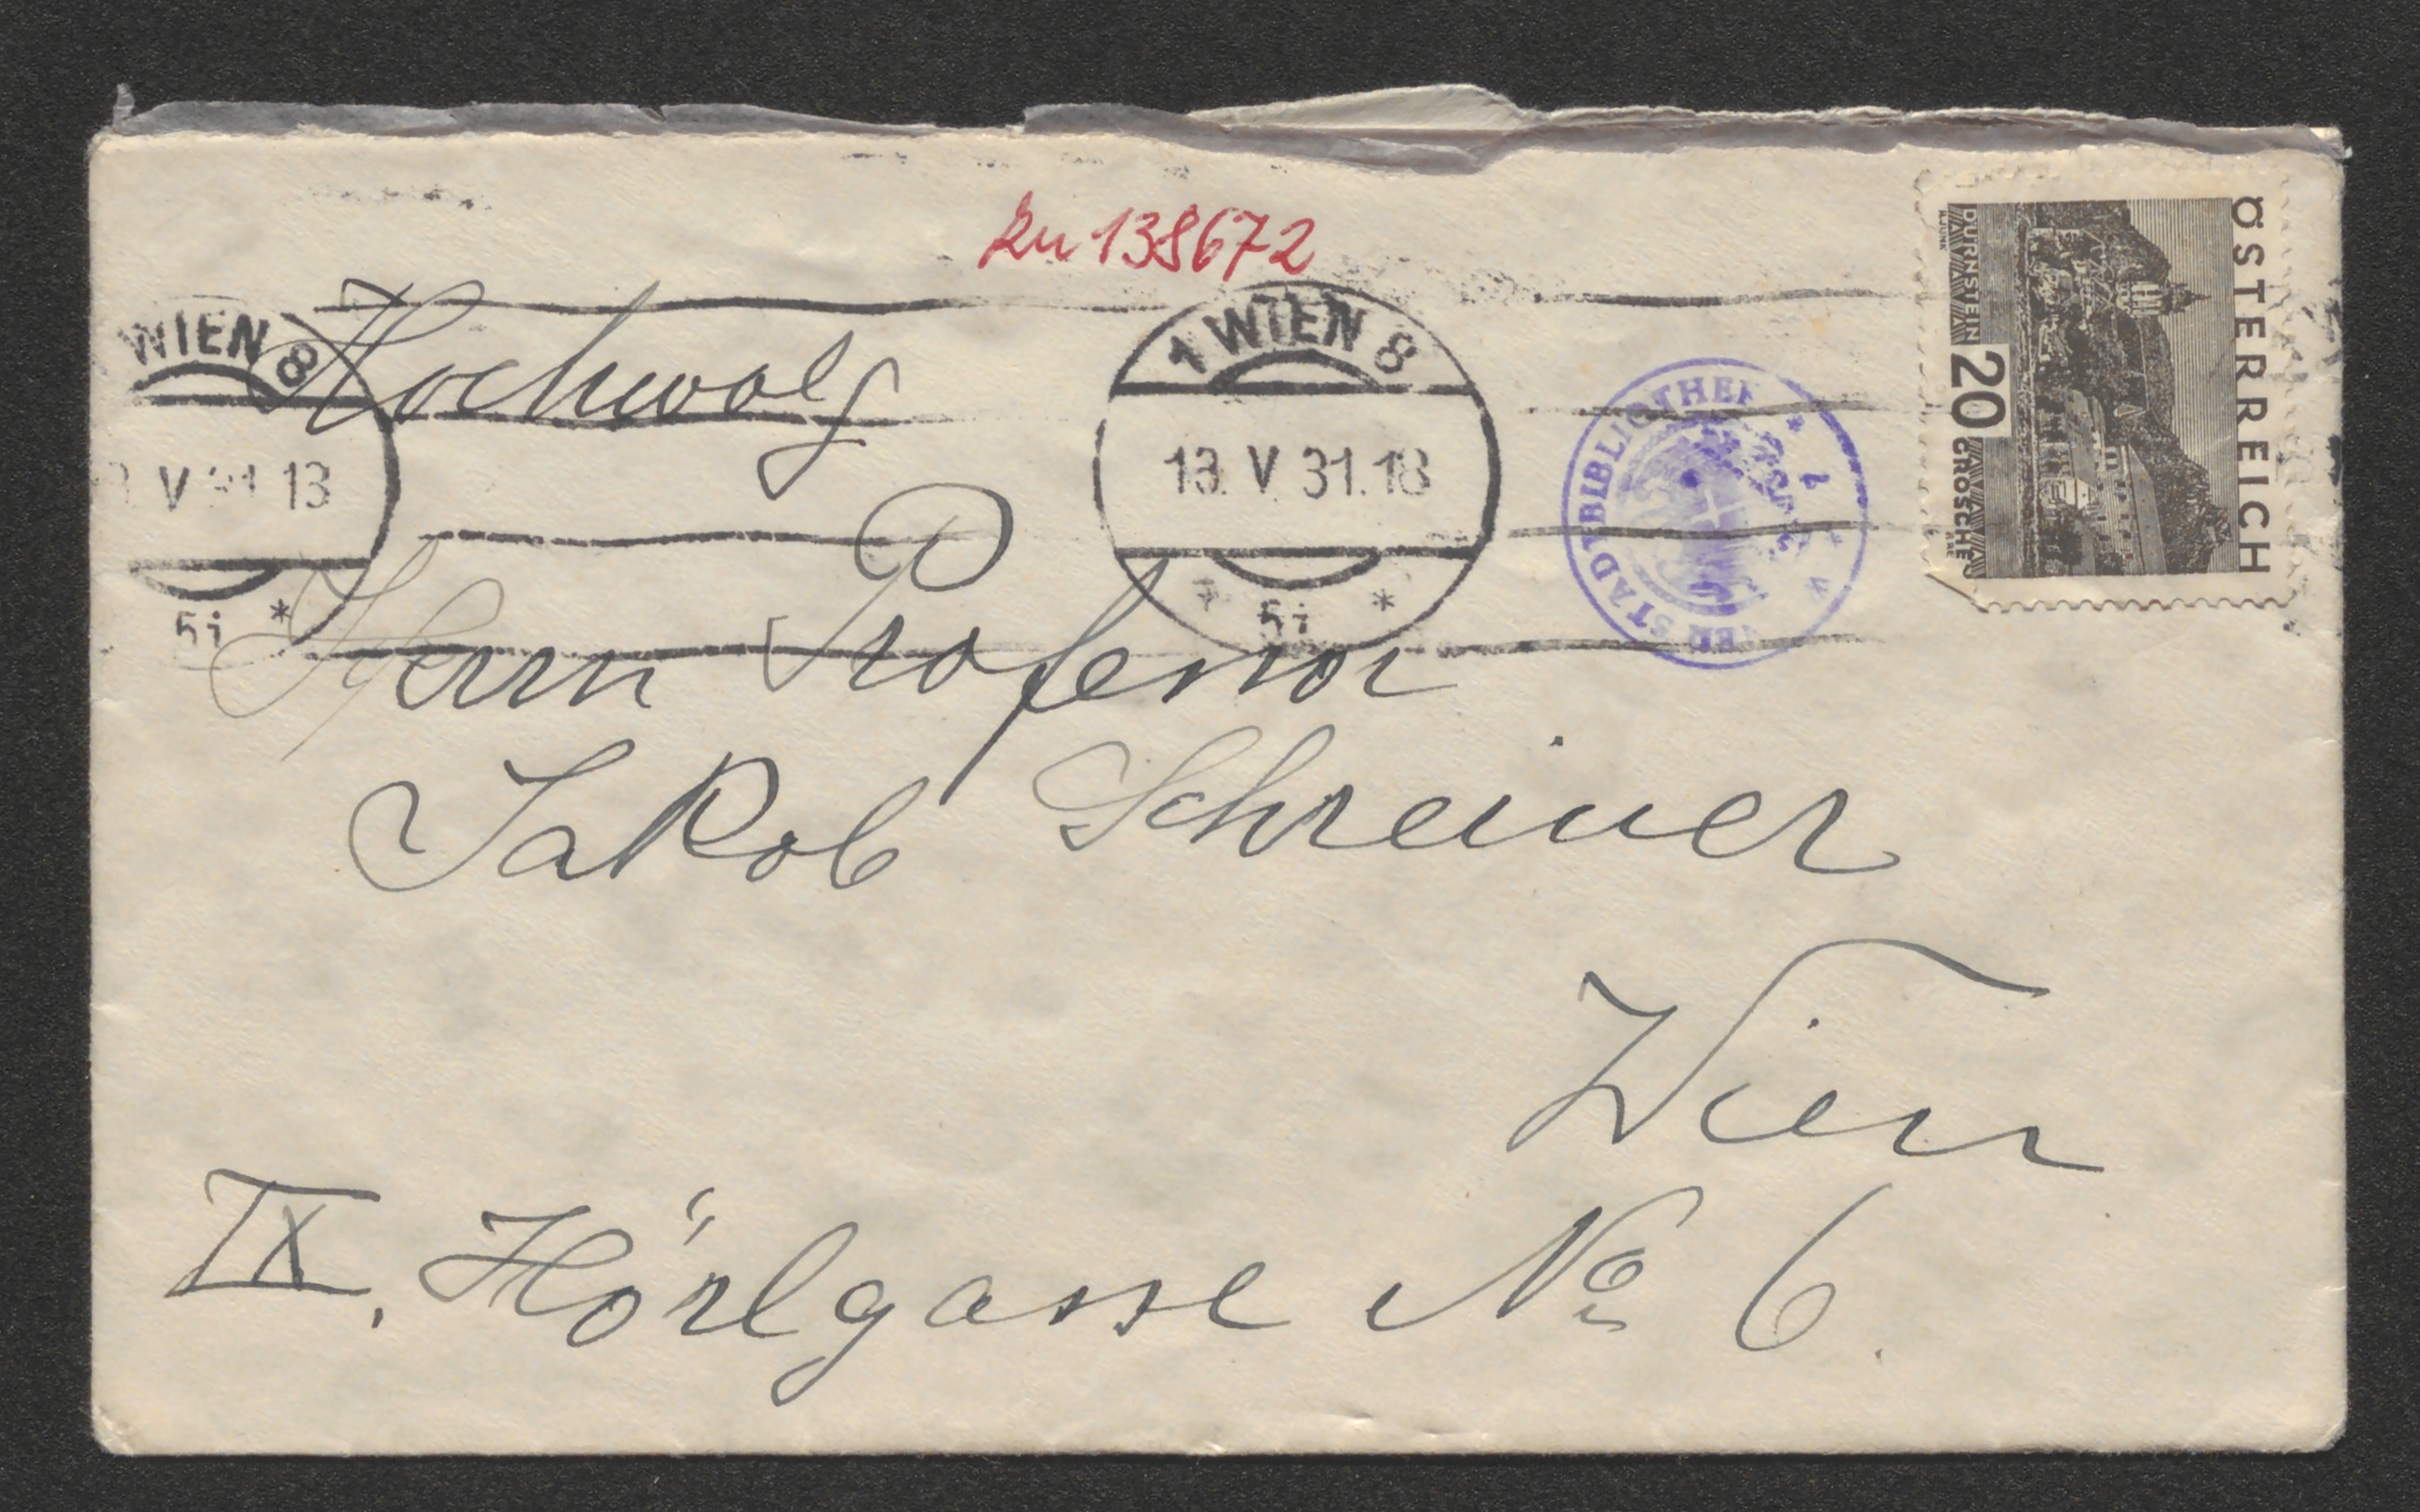 zu 138672
Hochwolg
Herrn Professor
Jakob Schreiner
Wien
IX. Hörlgasse No 6.
WIEN 8
V 31 18
5i *
1 WIEN 8
18. V 31. 18
* 5i *
STADTBIBLIOTHEK *
ÖSTERREICH
DÜRNSTEIN 20 GROSCHEN